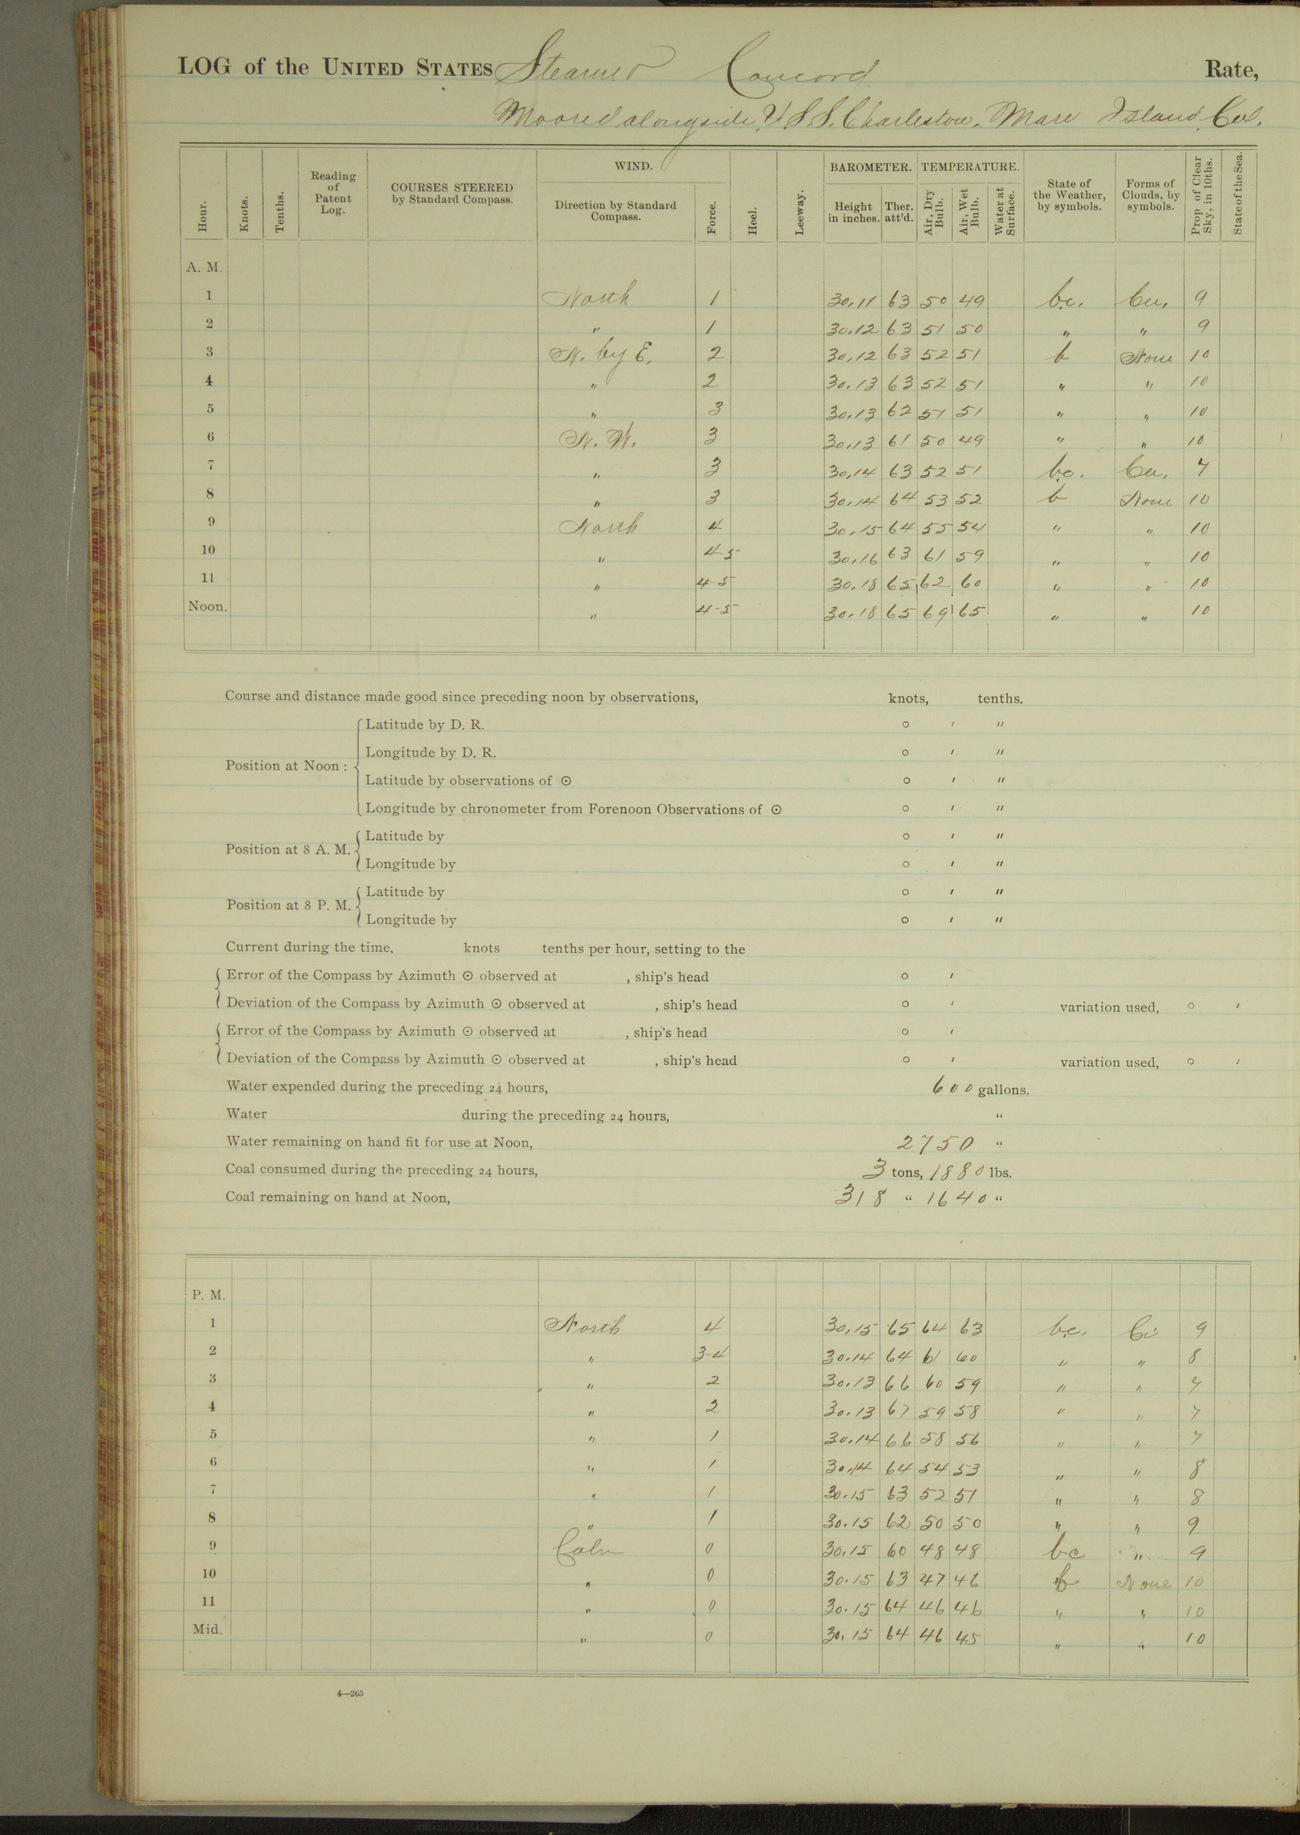 LOG of the UNITED STATES Steamer Concord Rate,
Moored alongside U.S.S. Charleston. Mare Island, Cal.
Hour. Knots. Tenths. Reading of Patent Log. COURSES STEERED by Standard Compass. WIND. Direction by Standard Compass. Force. Heel. Leeway. BAROMETER. Height in inches. Ther. att'd. TEMPERATURE. Air, Dry Bulb. Air, Wet Bulb. Water at Surface. State of the Weather, by symbols. Forms of Clouds, by symbols. Prop. of Clear Sky, in 10ths. State of the Sea.
A. M.
1 North 1 30.11 63 50 49 bc. Cu. 9
2 " 1 30.12 63 51 50 " " 9
3 N. by E. 2 30.12 63 52 51 b None 10
4 " 2 30.13 63 52 51 " " 10
5 " 3 30.13 62 51 51 " " 10
6 N. W. 3 30.13 61 50 49 " " 10
7 " 3 30.14 63 52 51 bc. Cu. 7
8 " 3 30.14 64 53 52 b None 10
9 North 4 30.15 64 55 54 " " 10
10 " 4-5 30.16 63 61 59 " " 10
11 " 4-5 30.18 65 62 60 " " 10
Noon. " 4-5 30.18 65 69 65 " " 10
Course and distance made good since preceding noon by observations, knots, tenths.
Position at Noon :
Latitude by D. R. ° ′ ″
Longitude by D. R. ° ′ ″
Latitude by observations of ☉ ° ′ ″
Longitude by chronometer from Forenoon Observations of ☉ ° ′ ″
Position at 8 A. M.
Latitude by ° ′ ″
Longitude by ° ′ ″
Position at 8 P. M.
Latitude by ° ′ ″
Longitude by ° ′ ″
Current during the time, knots tenths per hour, setting to the
Error of the Compass by Azimuth ☉ observed at , ship's head ° ′
Deviation of the Compass by Azimuth ☉ observed at , ship's head ° ′ variation used, ° ′
Error of the Compass by Azimuth ☉ observed at , ship's head ° ′
Deviation of the Compass by Azimuth ☉ observed at , ship's head ° ′ variation used, ° ′
Water expended during the preceding 24 hours, 600 gallons.
Water during the preceding 24 hours, "
Water remaining on hand fit for use at Noon, 2750 "
Coal consumed during the preceding 24 hours, 3 tons, 1880 lbs.
Coal remaining on hand at Noon, 318 " 1640 "
P. M.
1 North 4 30.15 65 64 63 bc. Ci 9
2 " 3-4 30.14 64 61 60 " " 8
3 " 2 30.13 66 60 59 " " 7
4 " 2 30.13 67 59 58 " " 7
5 " 1 30.14 66 58 56 " " 7
6 " 1 30.14 64 54 53 " " 8
7 " 1 30.15 63 52 51 " " 8
8 " 1 30.15 62 50 50 " " 9
9 Calm 0 30.15 60 48 48 bc " 9
10 " 0 30.15 63 47 46 b None 10
11 " 0 30.15 64 46 46 " " 10
Mid. " 0 30.15 64 46 45 " " 10
4—265